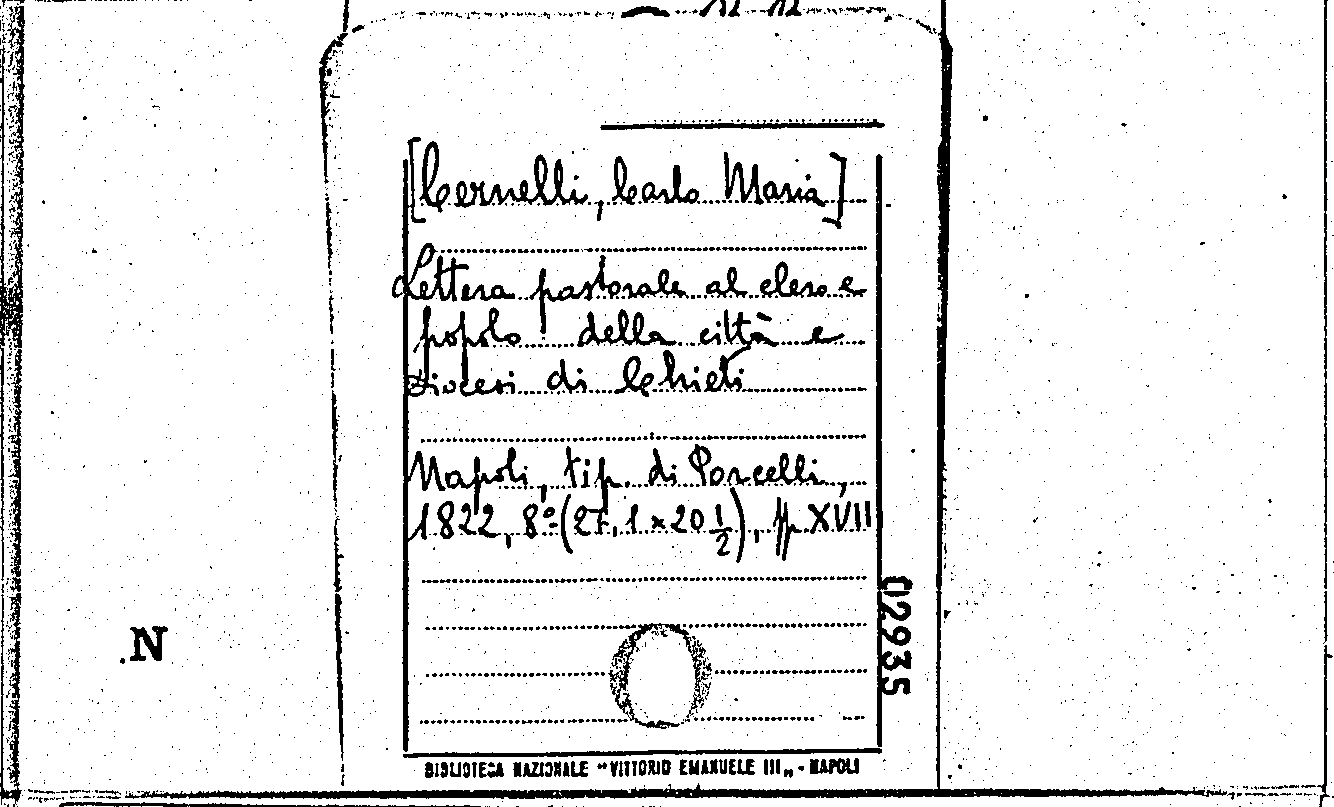 [Cernelli, Carlo Maria]
Lettera pastorale al clero e
popolo della città e
Diocesi di Chieti
Napoli, tip. di Porcelli,
1822, 8º (27,1 x 20 1/2), pp. XVII
02935
N
BIBLIOTECA NAZIONALE "VITTORIO EMANUELE III„ - NAPOLI